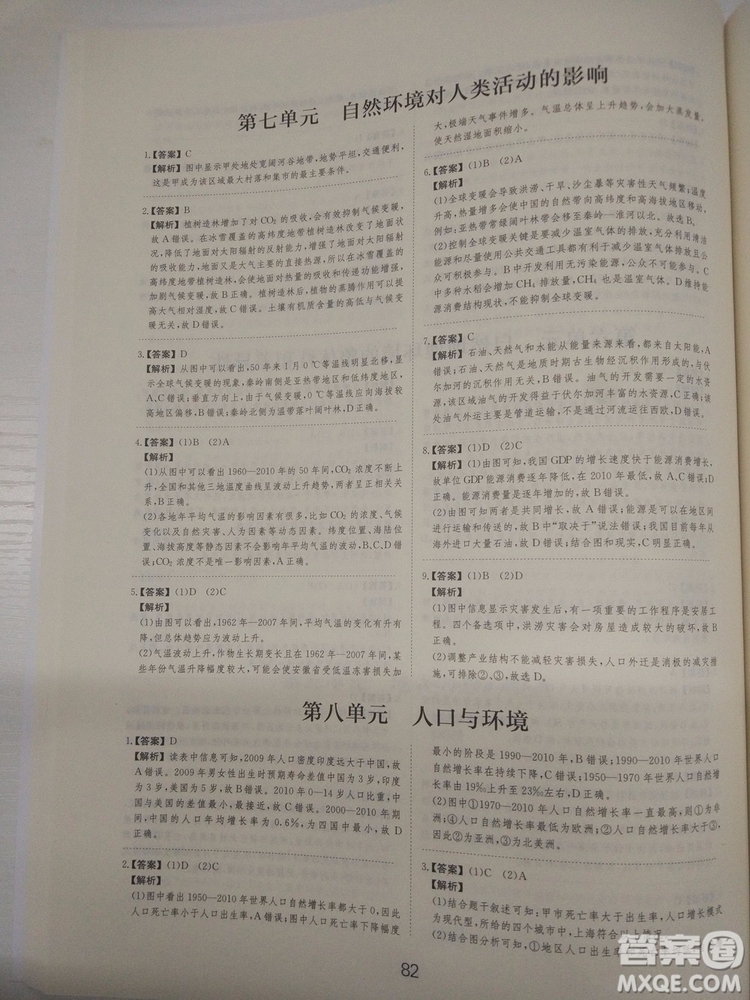 第七单元　自然环境对人类活动的影响
1.【答案】C
【解析】图中显示甲处地处宽阔河谷地带,地势平坦,交通便利,
这是甲成为该区域最大村落和集市的最主要条件。
2.【答案】B
【解析】植树造林增加了对CO₂的吸收,会有效抑制气候变暖,
故A错误。在冰雪覆盖的高纬度地区植树造林改变了地面状
况,降低了地面对太阳辐射的反射能力,增强了地面对太阳辐射
的吸收能力,地面又是大气主要的直接热源,所以在冰雪覆盖的
高纬度地带植树造林,会使地面对大气的热量传递功能增强,可
能会加剧气候变暖,故B正确。植树造林后,植物的蒸腾作用可以
提高大气相对湿度,故C错误。土壤有机质含量的高低与气候
变暖无关,故D错误。
3.【答案】D
【解析】从图中可以看出,50年来1月0℃等温线明显北移,显
示全球气候变暖的现象,秦岭南侧是亚热带地区和低纬度地区,
A、C错误;垂直方向上,由于气候变暖,等温线位置应向海拔较高
地区偏移,B错误;秦岭北侧为温带落叶阔叶林,D正确。
4.【答案】(1)B　(2)A
【解析】
(1)从图中可以看出1960—2010年的50年间,CO₂浓度不断上
升,全国和其他三地温度曲线呈波动上升趋势,两者呈正相关,
B正确。
(2)各地年平均气温的影响因素有很多,比如CO₂浓度、气候
突变、太阳黑子、人类活动等动态因素。纬度位置、海陆位
置、海拔高度等静态因素不会影响平均气温的波动,B、D错
误。CO₂浓度不是唯一影响因素,A正确。
5.【答案】(1)D　(2)C
【解析】
(1)由图可以看出,1962年—2007年间,平均气温的变化有升有
降,但总体趋势应为波动上升。
(2)气温波动上升,作物生长期变长且1962年—2007年间,某
些年份气温升降幅度较大,可能会使安徽省受低温冻害损失加
大,极端天气事件增多。气温总体呈上升趋势,会加大蒸发量,
使天然湿地面积缩小。
6.【答案】(1)B　(2)A
【解析】
(1)全球变暖会导致洪涝、干旱、沙尘暴等灾害性天气频繁;温度
升高,热量增多会使中国大部分地区的农作物复种指数提高,
例如,亚热带常绿阔叶林带会移至秦岭—淮河以北,故选B。
(2)控制全球变暖关键是要减少温室气体的排放,充分利用清洁
能源和使用公共交通工具都有利于减少温室气体排放且公
众可积极参与。开发和利用无污染能源,公众不可能参与。
田中多种水稻会增多CH₄排放量,CH₄也是温室气体。调整
能源消费结构现状,不能抑制全球变暖。
7.【答案】C
【解析】石油、天然气和水能从能量来源来看,都来自太阳能,A
错误;石油、天然气是地质时期古生物经沉积作用形成的,与
伏尔加河的沉积作用无关,B错误。油气的开发需要便利的水
源,该区域油气开发可以为伏尔加河提供水源,故C正确。该
处油气外运主要是管道运输,不是通过河流运往西欧,D错误。
8.【答案】(1)D　(2)C
【解析】(1)由图可知,我国GDP的增长速度快于能源消费增长,
故单位GDP能耗逐年降低,在2010年最低,故选D。
(2)由图可知两者是共同增长,故A错误。能源可以在地区之
间进行运输和传送,故B中“取决于”说法错误。我国每年从
海外进口大量石油,故D错误;结合图和现实,C明显正确。
9.【答案】(1)B　(2)D
【解析】
(1)图中信息显示灾害发生后,有一项重要的工作程序是安居工
程。四个备选项中,洪涝灾害会对房屋造成较大的破坏,故B
正确。
(2)调整产业结构不能减轻灾害损失,人口外迁属极端的减灾措
施,可排除②、③,因此选D。
第八单元　人口与环境
1.【答案】D
【解析】读表中信息可知,2009年人口密度印度远大于中国,故
A错误。2009年男女性出生时预期寿命差值中国为3岁,印度
为3岁,美国为5岁,故B错误。2010年0~14岁人口比重,中
国与美国的差值最小,最接近,故C错误。2000—2010年期
间,中国的人口年均增长率为0.6%,为四国中最小,故D
正确。
2.【答案】(1)D　(2)C
【解析】
(1)图中看出1950—2010年世界人口自然增长率都大于0,因此
人口死亡率小于人口出生率,A错误;图中人口死亡率下降幅度
最小的阶段是1990—2010年,B错误;1950—2010年世界人口
自然增长率在持续下降,C错误;1950—1970年世界人口自然
增长率由18‰上升至23‰左右,D正确。
(2)图中①1970—2010年人口自然增长率一直最高,则为非洲;
④人口自然增长率最低为欧洲;②人口自然增长率大于③,
因此②为亚洲;③为北美洲。
3.【答案】(1)C　(2)A
【解析】
(1)结合题干叙述可知:甲市死亡率大于出生率,人口增长模式
为现代型,所给的四个选项中,上海符合以上情况。
(2)结合图分析可知,①地区人口出生率
82
答案圈
MXQE.COM